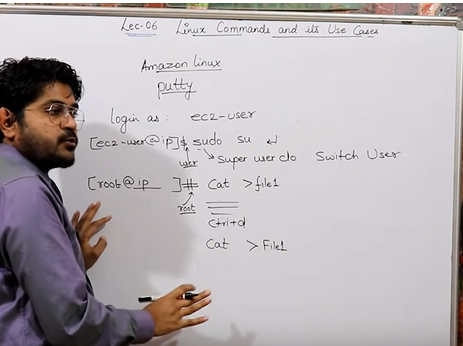 Lec-06 Linux Commands and its Use Cases
Amazon linux
putty
login as: ec2-user
[ec2-user@ip]$ sudo su ↵
user → Super user do Switch User
[root@ip ]# Cat >file1
root
Ctrl+d
Cat >File1